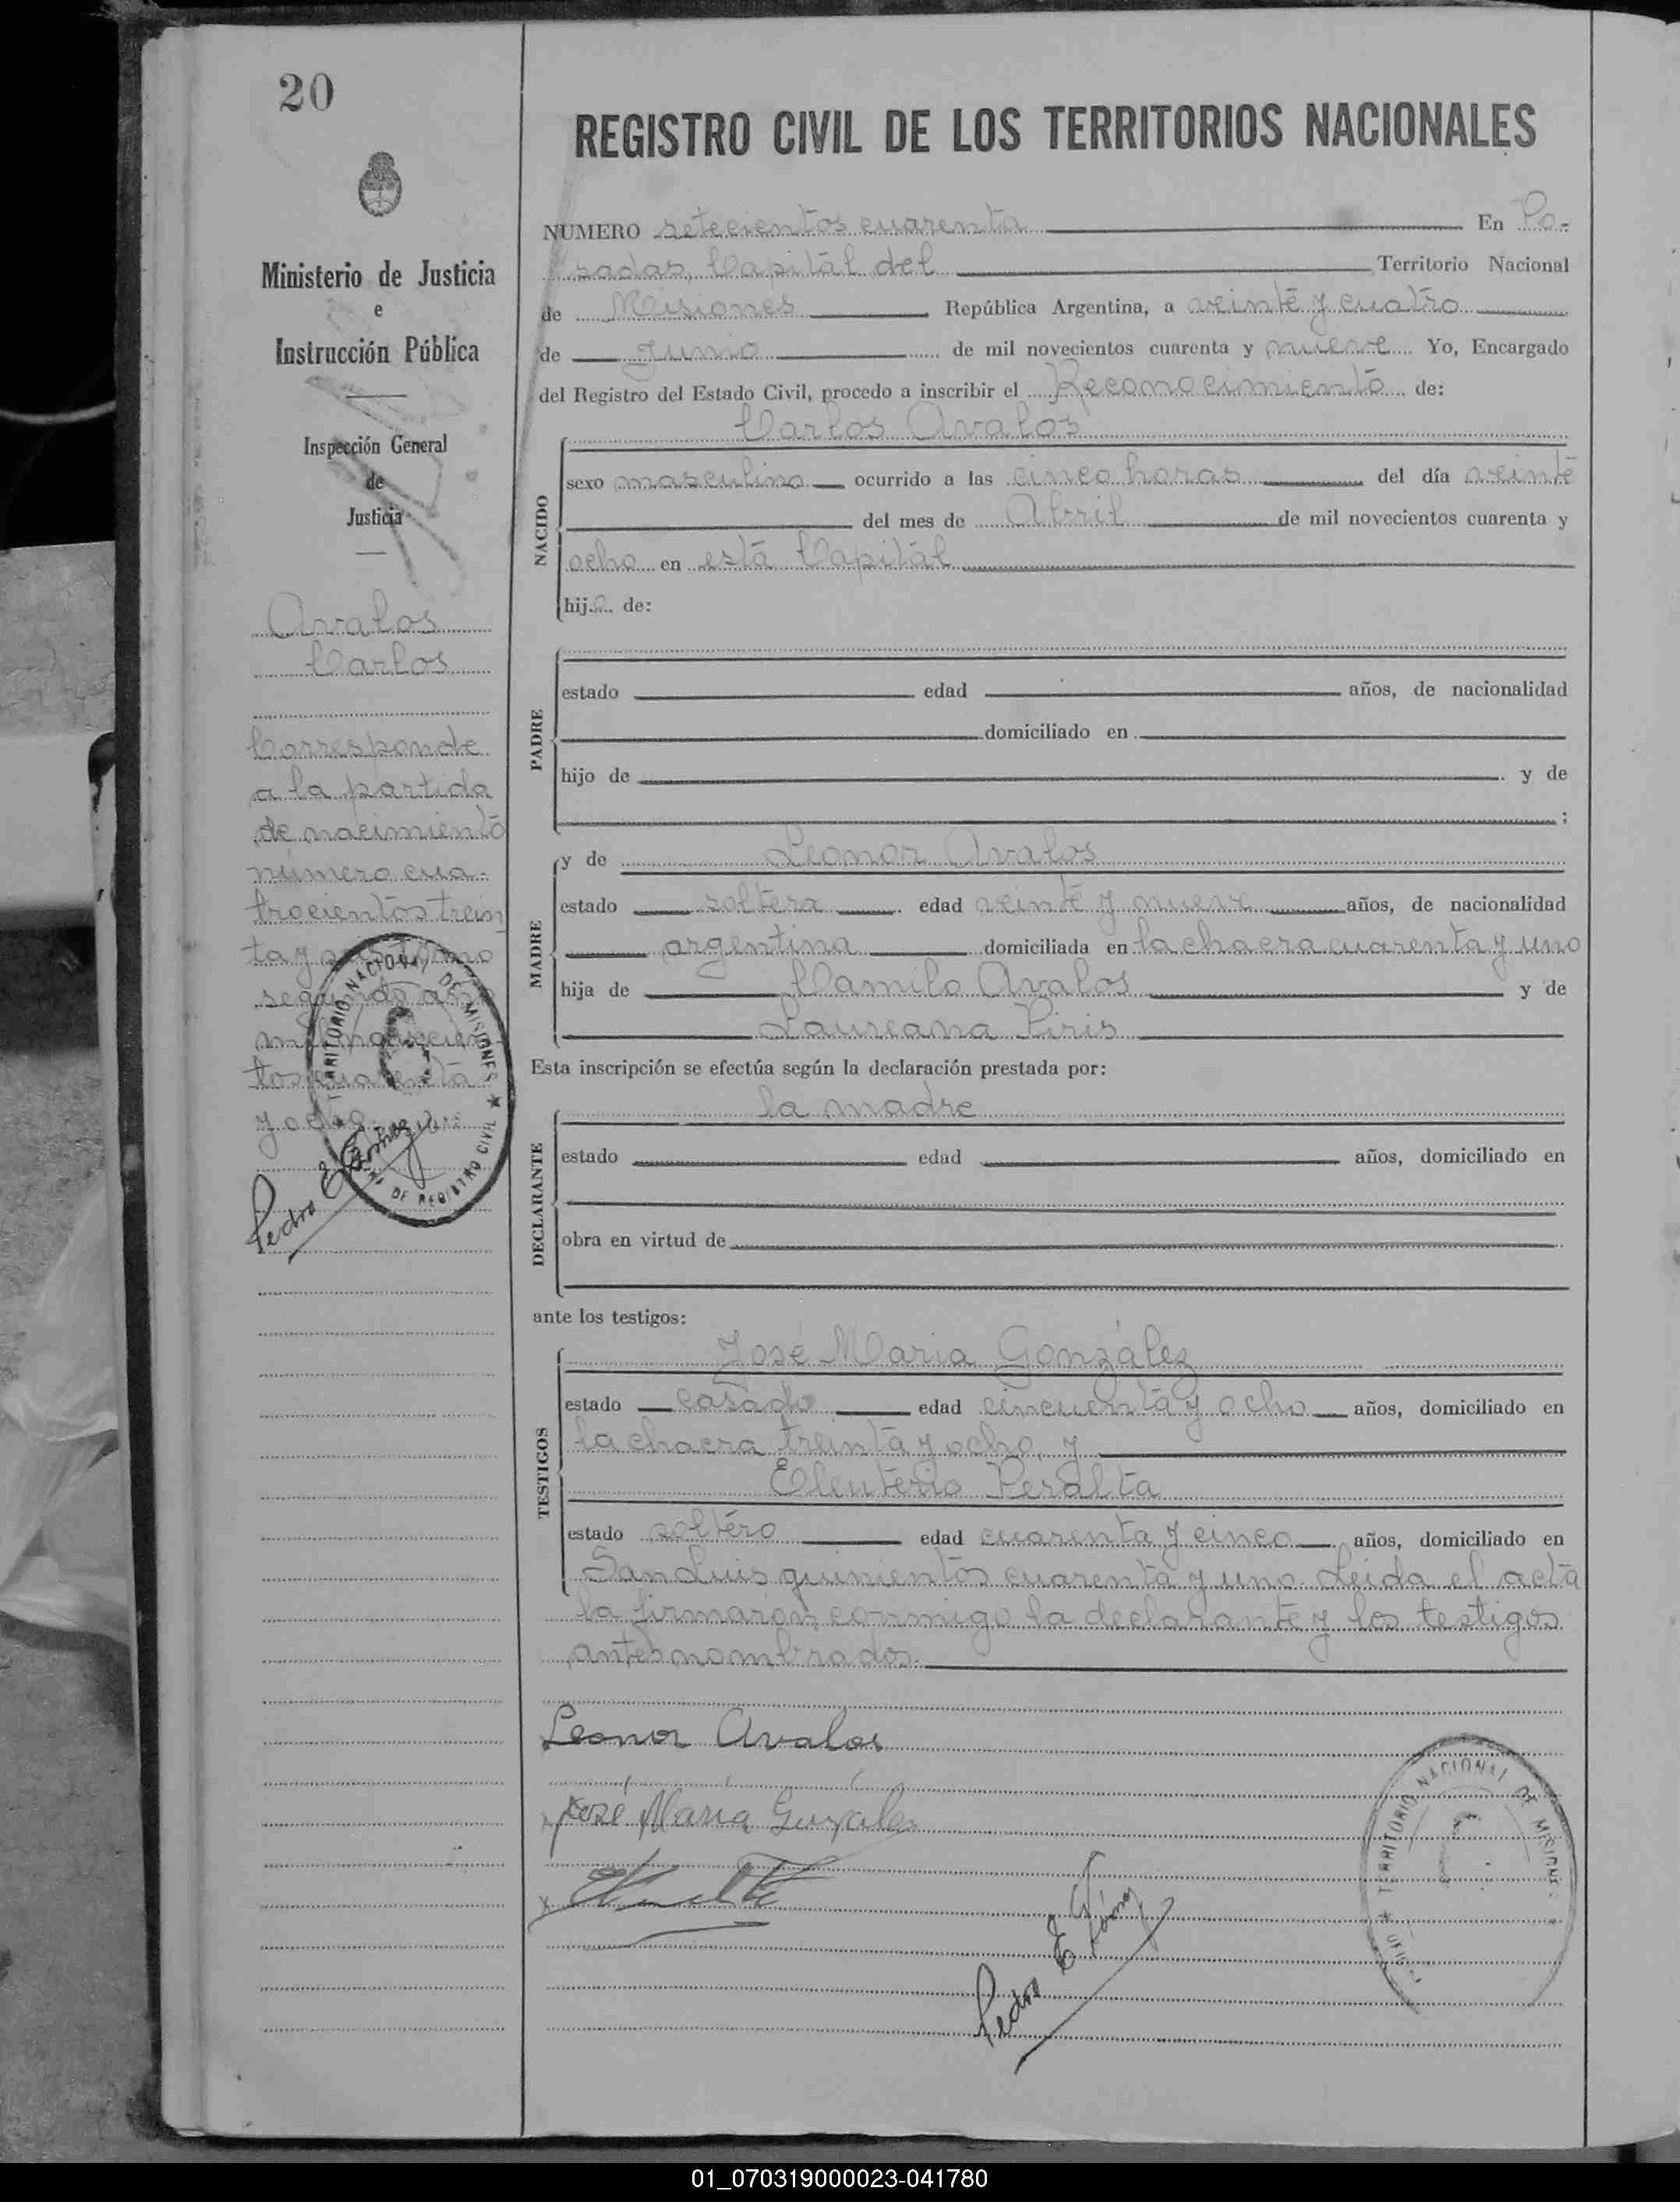 20
Ministerio de Justicia
e
Instrucción Pública
Inspección General
de
Justicia
Avalos
Carlos
Corresponde
a la partida
de nacimiento
número cua-
trocientos trein
ta y tomo
segundo año
mil novecien
tos cuarenta
y ocho
TERRITORIO NACIONAL DE MISIONES
DE REGISTRO CIVIL
Pedro E
REGISTRO CIVIL DE LOS TERRITORIOS NACIONALES
NUMERO setecientos cuarenta En Po-
sadas, Capital del Territorio Nacional
de Misiones República Argentina, a veinte y cuatro
de Junio de mil novecientos cuarenta y nueve Yo, Encargado
del Registro del Estado Civil, procedo a inscribir el Reconocimiento de:
Carlos Avalos
NACIDO
sexo masculino ocurrido a las cinco horas del día veinte
del mes de Abril de mil novecientos cuarenta y
ocho en está Capital
hijo de:
PADRE
estado edad años, de nacionalidad
domiciliado en
hijo de y de
;
MADRE
y de Leonor Avalos
estado soltera edad veinte y nueve años, de nacionalidad
argentina domiciliada en la chacra cuarenta y uno
hija de Camilo Avalos y de
Laureana Piris
Esta inscripción se efectúa según la declaración prestada por:
DECLARANTE
la madre
estado edad años, domiciliado en
obra en virtud de
ante los testigos:
TESTIGOS
José Maria González
estado casado edad cincuenta y ocho años, domiciliado en
la chacra treinta y ocho, y
Eleuterio Peralta
estado soltero edad cuarenta y cinco años, domiciliado en
San Luis quinientos cuarenta y uno. Leida el acta
la firmaron conmigo la declarante y los testigos
antes nombrados.
Leonor Avalos
José Maria Gonzales
Pedro E
TERRITORIO NACIONAL DE MISIONES
01_070319000023-041780